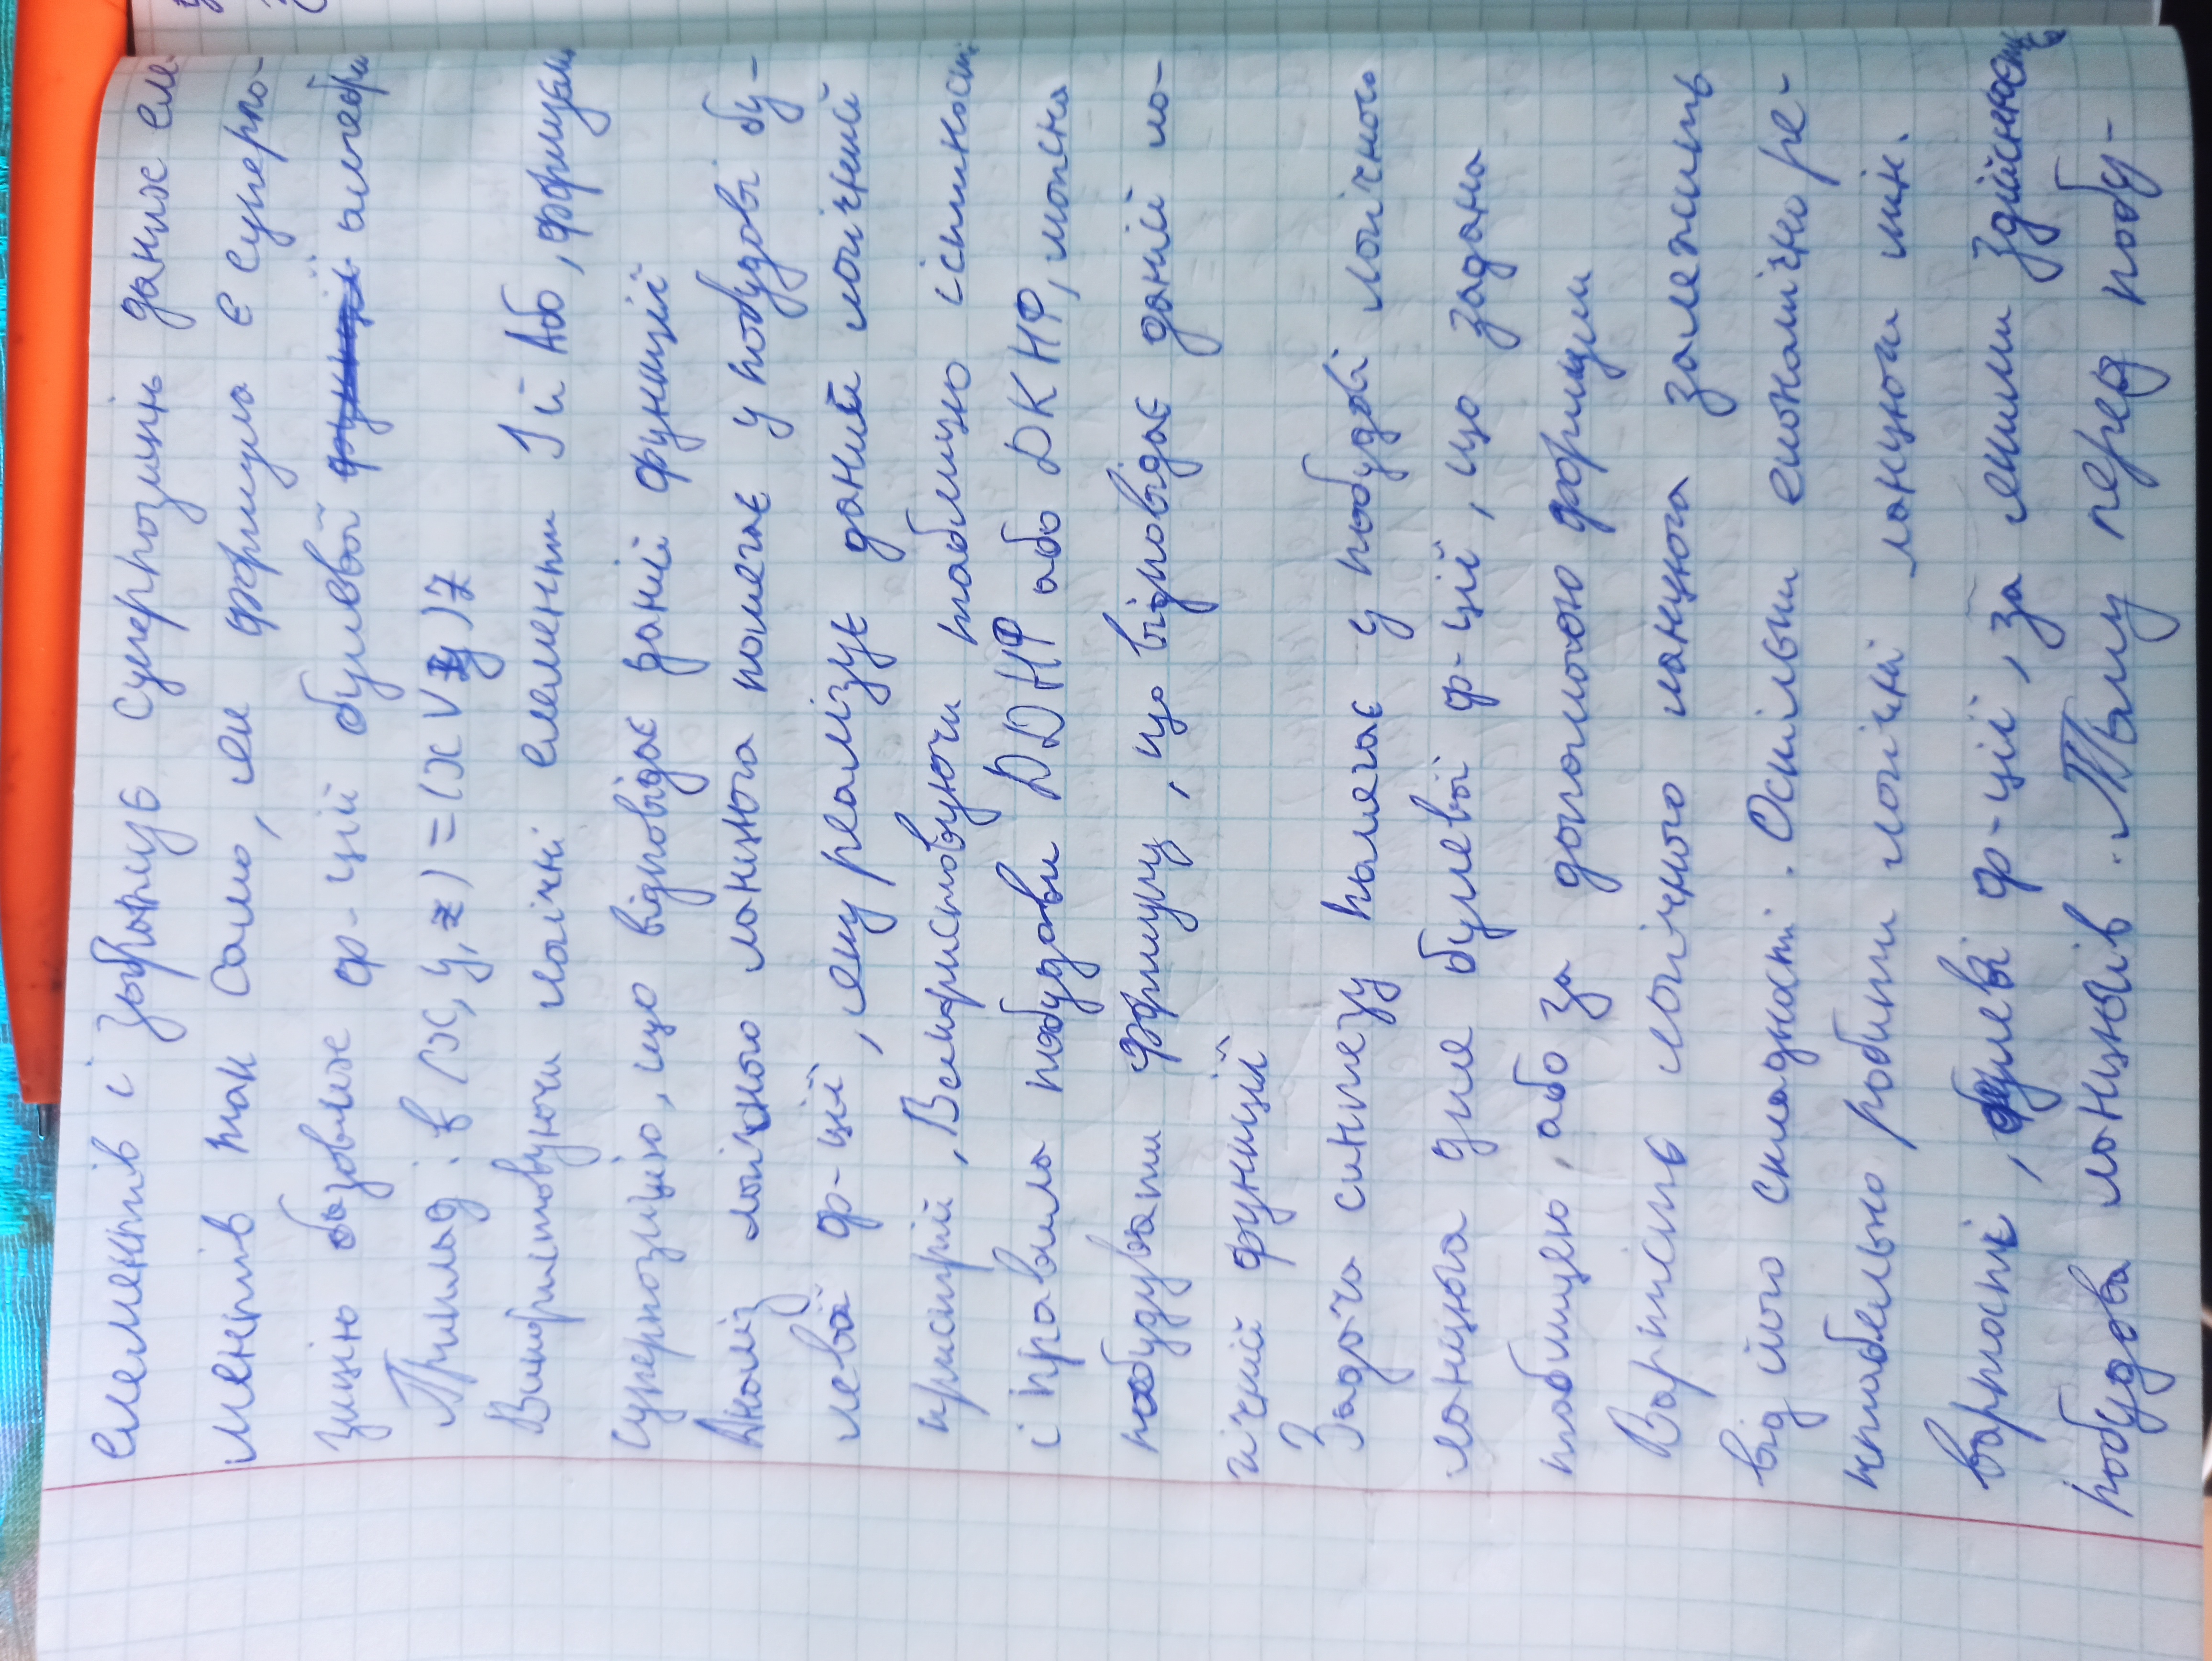 елементів і зображує суперпозицію даних еле-
ментів так само, як формула є суперпо-
зицію базових ф-цій булевої алгебри
Приклад: f (x, y, z) = (x V y) z
Використовуючи логічні елементи І й Або, формуємо
суперпозицію, що відповідає даній функції
Аналіз логічного ланцюга полягає у побудові бу-
левої ф-ції, яку реалізує даний логічний
пристрій, Використовуючи таблицю істинності
і правила побудови ДДНФ або ДКНФ, можна
побудувати формулу, що відповідає даній ло-
гічній функції
Задача синтезу полягає у побудові логічного
ланцюга для булевої ф-ції, що задана
таблицею або за допомогою формули
Вартість логічного ланцюга залежить
від його складності. Оскільки економічно ре-
нтабельно робити логічні ланцюги мін.
вартості, булеві ф-ції, за якими здійснюється
побудова ланцюгів. Тому перед побу-